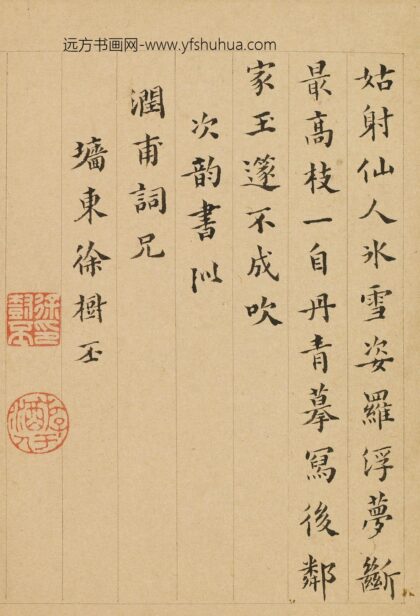 远方书画网-www.yfshuhua.com
姑射仙人氷雪姿羅浮夢斷
最高枝一自丹青摹寫後鄰
家玉篴不成吹
次韵書似
潤甫詞兄
墻東徐樹丕